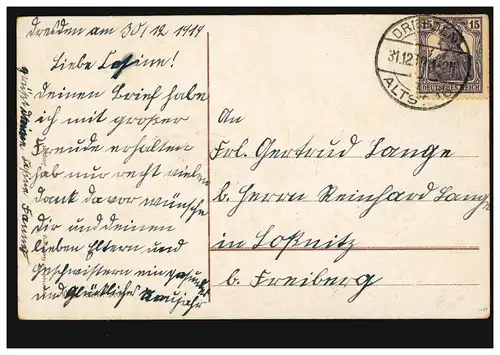 Dresden am 30/12 1919
Liebe Cosine!
deinen Brief habe
ich mit großer
Freude erhalten
hab nur recht vielen
dank davor wünsche
Dir und deinen
lieben Eltern und
Geschwistern ein gesundes
und glückliches Neujahr
An
Frl. Gertrud Lange
b. Herrn Reinhard Lange
in Loßnitz
b. Freiberg
DRESDEN
31.12.19
ALTST.
15 15
DEUTSCHES REICH